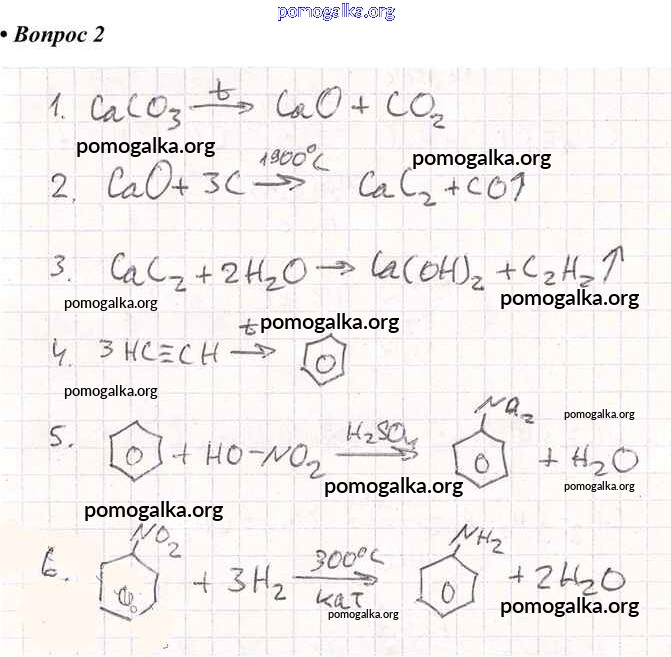 pomogalka.org
• Вопрос 2
1. CaCO3 t→ CaO + CO2
pomogalka.org
pomogalka.org
2. CaO + 3C 1900°C→ CaC2 + CO↑
3. CaC2 + 2H2O → Ca(OH)2 + C2H2↑
pomogalka.org
pomogalka.org
pomogalka.org
4. 3HC≡CH t→
pomogalka.org
NO2
pomogalka.org
5. + HO-NO2 H2SO4→ + H2O
pomogalka.org
pomogalka.org
pomogalka.org
NO2 NH2
6. + 3H2 300°C→ + 2H2O
кат
pomogalka.org
pomogalka.org